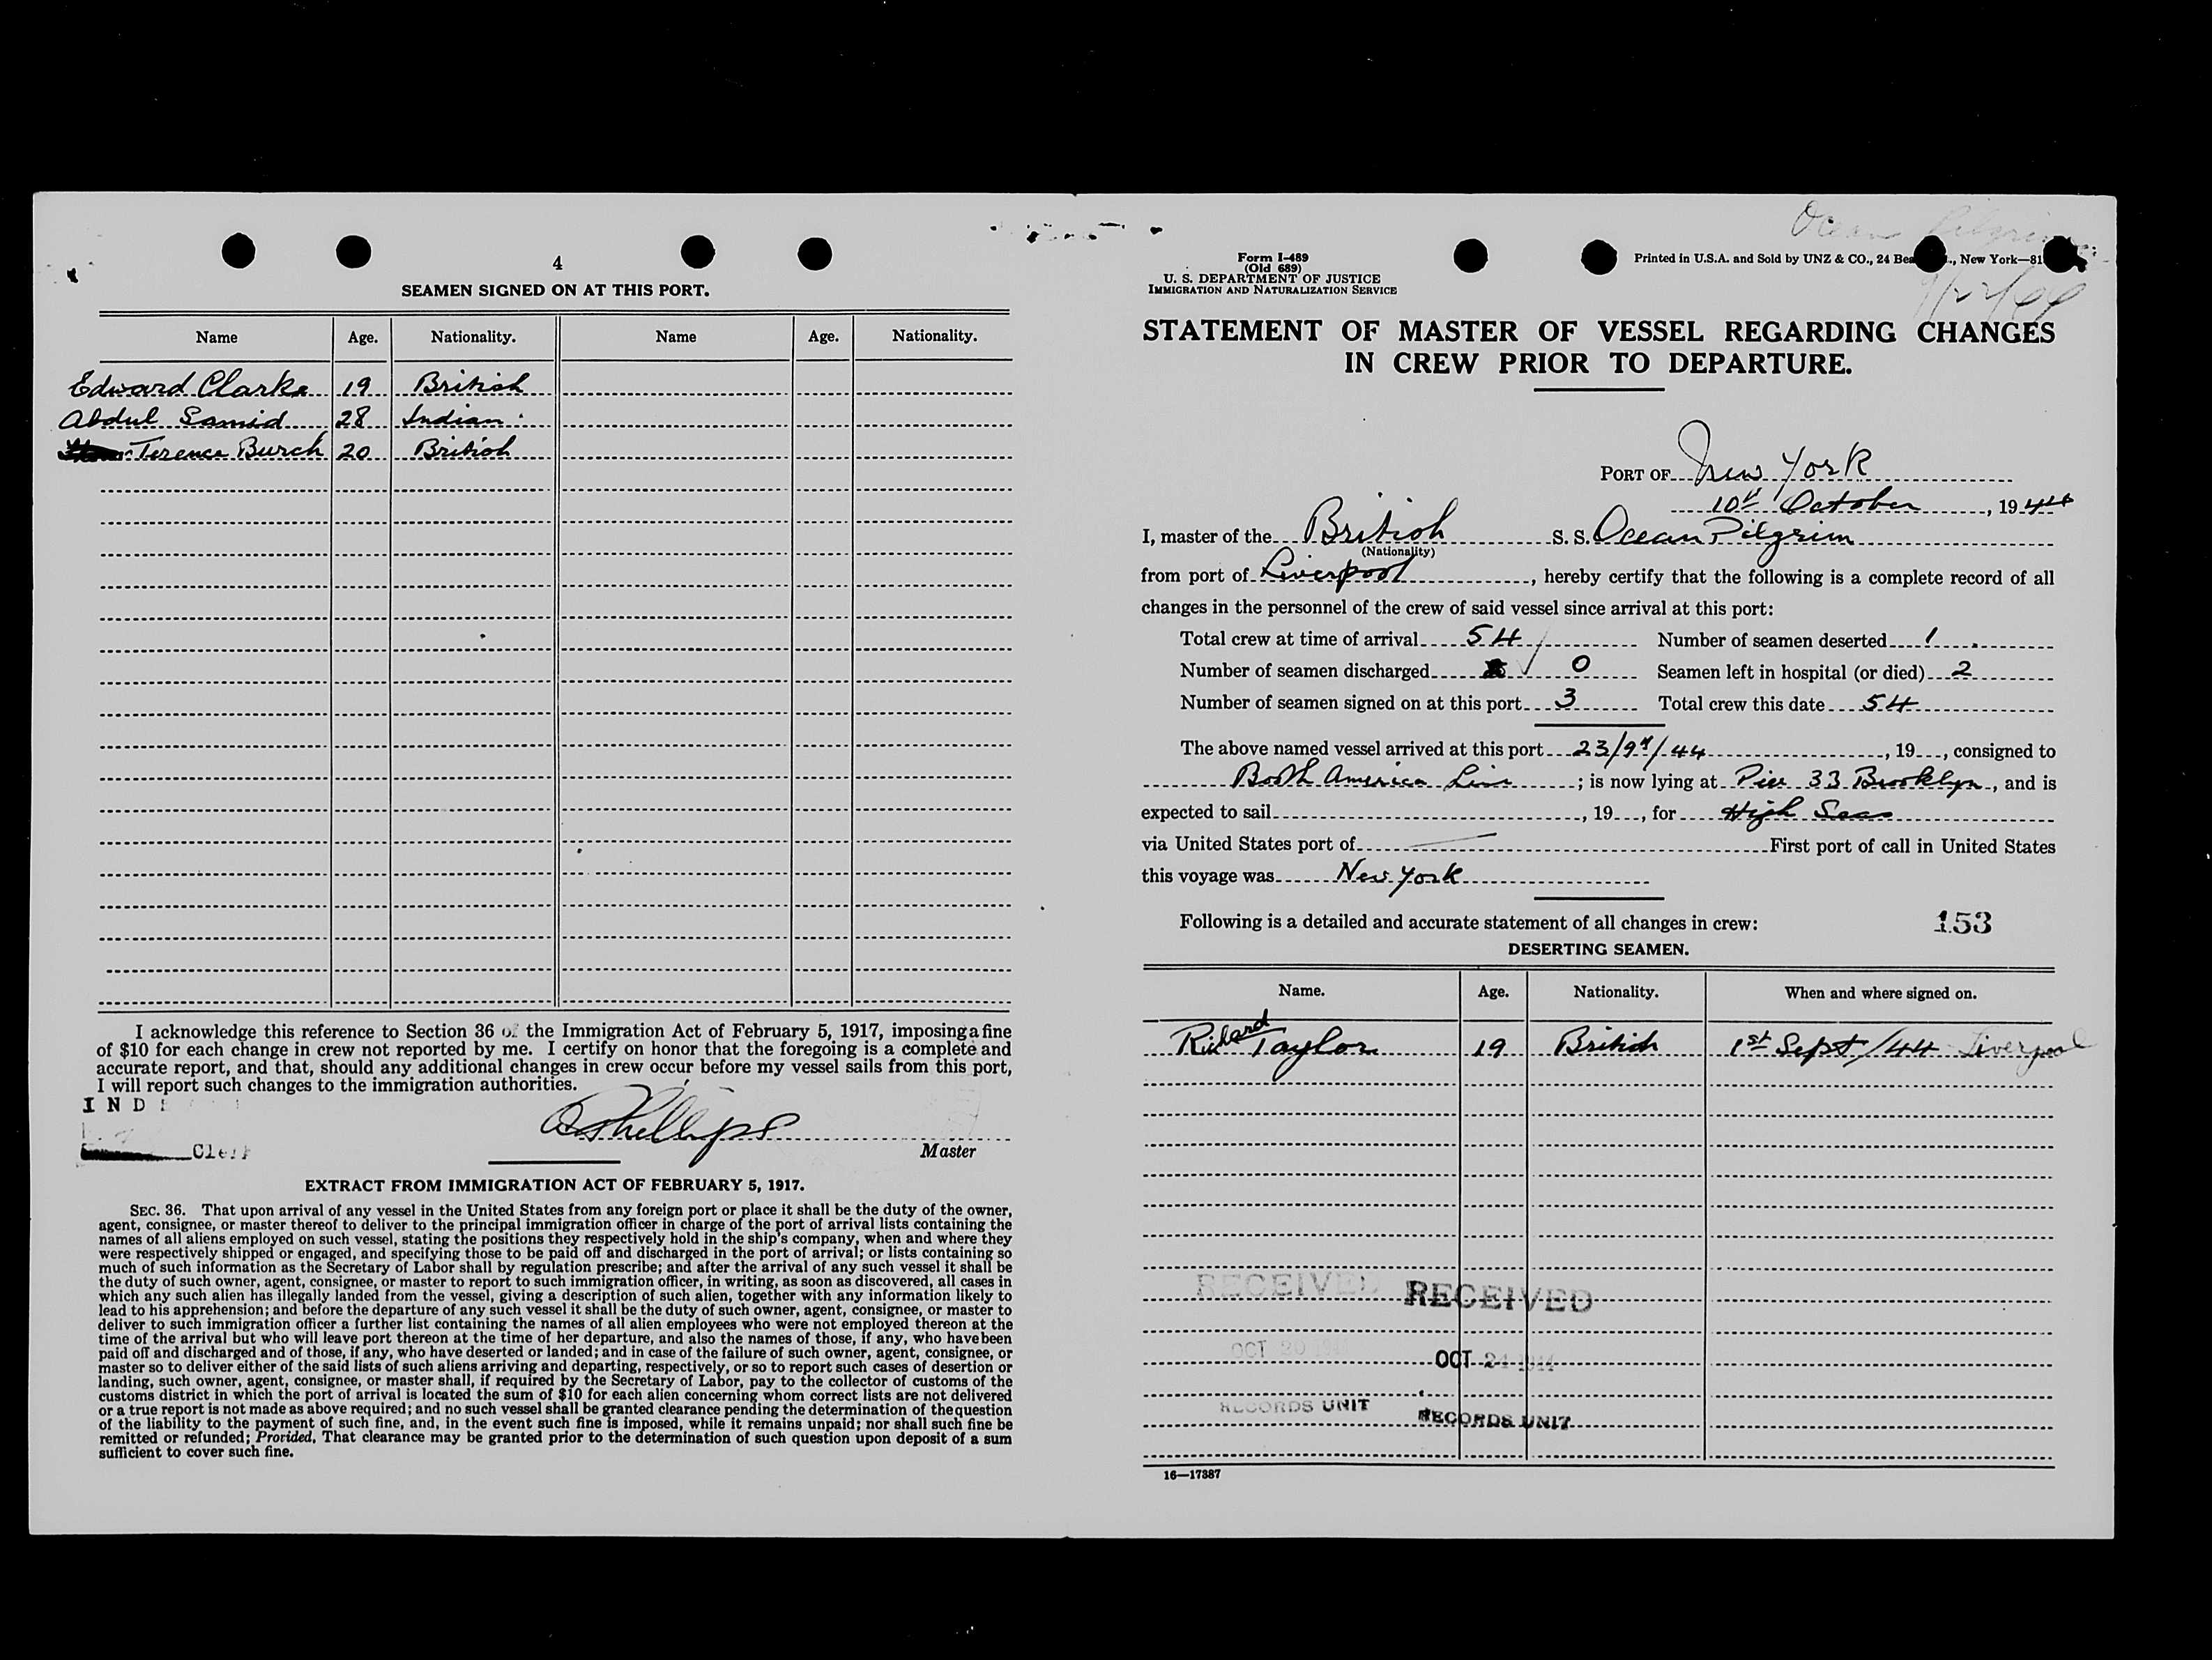 4
SEAMEN SIGNED ON AT THIS PORT.
Name Age. Nationality. Name Age. Nationality.
Edward Clarke 19 British
Abdul Samid 28 Indian
Terence Burch 20 British
I acknowledge this reference to Section 36 of the Immigration Act of February 5, 1917, imposing a fine
of $10 for each change in crew not reported by me. I certify on honor that the foregoing is a complete and
accurate report, and that, should any additional changes in crew occur before my vessel sails from this port,
I will report such changes to the immigration authorities.
IND
Phillips
Clerk
Master
EXTRACT FROM IMMIGRATION ACT OF FEBRUARY 5, 1917.
SEC. 36. That upon arrival of any vessel in the United States from any foreign port or place it shall be the duty of the owner,
agent, consignee, or master thereof to deliver to the principal immigration officer in charge of the port of arrival lists containing the
names of all aliens employed on such vessel, stating the positions they respectively hold in the ship's company, when and where they
were respectively shipped or engaged, and specifying those to be paid off and discharged in the port of arrival; or lists containing so
much of such information as the Secretary of Labor shall by regulation prescribe; and after the arrival of any such vessel it shall be
the duty of such owner, agent, consignee, or master to report to such immigration officer, in writing, as soon as discovered, all cases in
which any such alien has illegally landed from the vessel, giving a description of such alien, together with any information likely to
lead to his apprehension; and before the departure of any such vessel it shall be the duty of such owner, agent, consignee, or master to
deliver to such immigration officer a further list containing the names of all alien employees who were not employed thereon at the
time of the arrival but who will leave port thereon at the time of her departure, and also the names of those, if any, who have been
paid off and discharged and of those, if any, who have deserted or landed; and in case of the failure of such owner, agent, consignee, or
master so to deliver either of the said lists of such aliens arriving and departing, respectively, or so to report such cases of desertion or
landing, such owner, agent, consignee, or master shall, if required by the Secretary of Labor, pay to the collector of customs of the
customs district in which the port of arrival is located the sum of $10 for each alien concerning whom correct lists are not delivered
or a true report is not made as above required; and no such vessel shall be granted clearance pending the determination of the question
of the liability to the payment of such fine, and, in the event such fine is imposed, while it remains unpaid; nor shall such fine be
remitted or refunded; Provided, That clearance may be granted prior to the determination of such question upon deposit of a sum
sufficient to cover such fine.
Ocean Pilgrim
Form I-489
(Old 689)
U. S. DEPARTMENT OF JUSTICE
IMMIGRATION AND NATURALIZATION SERVICE
Printed in U.S.A. and Sold by UNZ & CO., 24 Bea ., New York—81
STATEMENT OF MASTER OF VESSEL REGARDING CHANGES
IN CREW PRIOR TO DEPARTURE.
PORT OF New York
10th October, 1944
I, master of the British S. S. Ocean Pilgrim
(Nationality)
from port of Liverpool, hereby certify that the following is a complete record of all
changes in the personnel of the crew of said vessel since arrival at this port:
Total crew at time of arrival 54 Number of seamen deserted 1
Number of seamen discharged 0 Seamen left in hospital (or died) 2
Number of seamen signed on at this port 3 Total crew this date 54
The above named vessel arrived at this port 23/9/44, 19 , consigned to
Booth America Line; is now lying at Pier 33 Brooklyn, and is
expected to sail , 19 , for High Seas
via United States port of First port of call in United States
this voyage was New York
Following is a detailed and accurate statement of all changes in crew: 153
DESERTING SEAMEN.
Name. Age. Nationality. When and where signed on.
Richard Taylor 19 British 1st Sept/44 Liverpool
RECEIVED RECEIVED
OCT 20 1944 OCT 24 1944
RECORDS UNIT RECORDS UNIT
16—17387